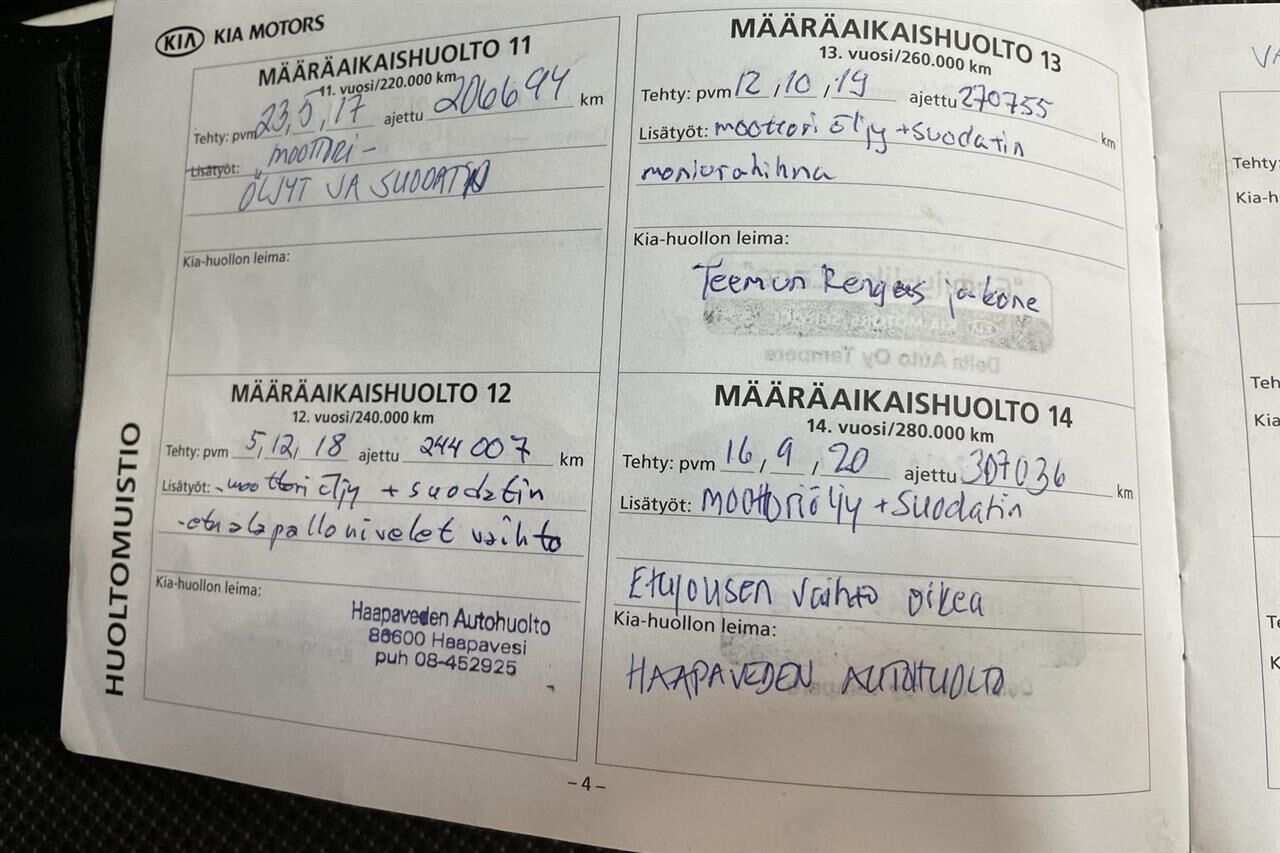 KIA KIA MOTORS
MÄÄRÄAIKAISHUOLTO 11
11. vuosi/220.000 km
Tehty: pvm 23,5,17 ajettu 206694 km
Lisätyöt: MOOTTORI-
ÖLJYT JA SUODATIN
Kia-huollon leima:
MÄÄRÄAIKAISHUOLTO 12
12. vuosi/240.000 km
Tehty: pvm 5,12,18 ajettu 244007 km
Lisätyöt: -moottori öljy + suodatin
-etu alapallonivelet vaihto
Kia-huollon leima:
Haapaveden Autohuolto
86600 Haapavesi
puh 08-452925
MÄÄRÄAIKAISHUOLTO 13
13. vuosi/260.000 km
Tehty: pvm 12,10,19 ajettu 270755 km
Lisätyöt: moottori öljy + suodatin
moniurahihna
Kia-huollon leima:
Teemun Rengas ja kone
MÄÄRÄAIKAISHUOLTO 14
14. vuosi/280.000 km
Tehty: pvm 16,9,20 ajettu 307036 km
Lisätyöt: moottoriöljy + Suodatin
Etujousen vaihto oikea
Kia-huollon leima:
HAAPAVEDEN AUTOHUOLTO
HUOLTOMUISTIO
– 4 –
VA
Tehty:
Kia-h
Teh
Kia
Te
K